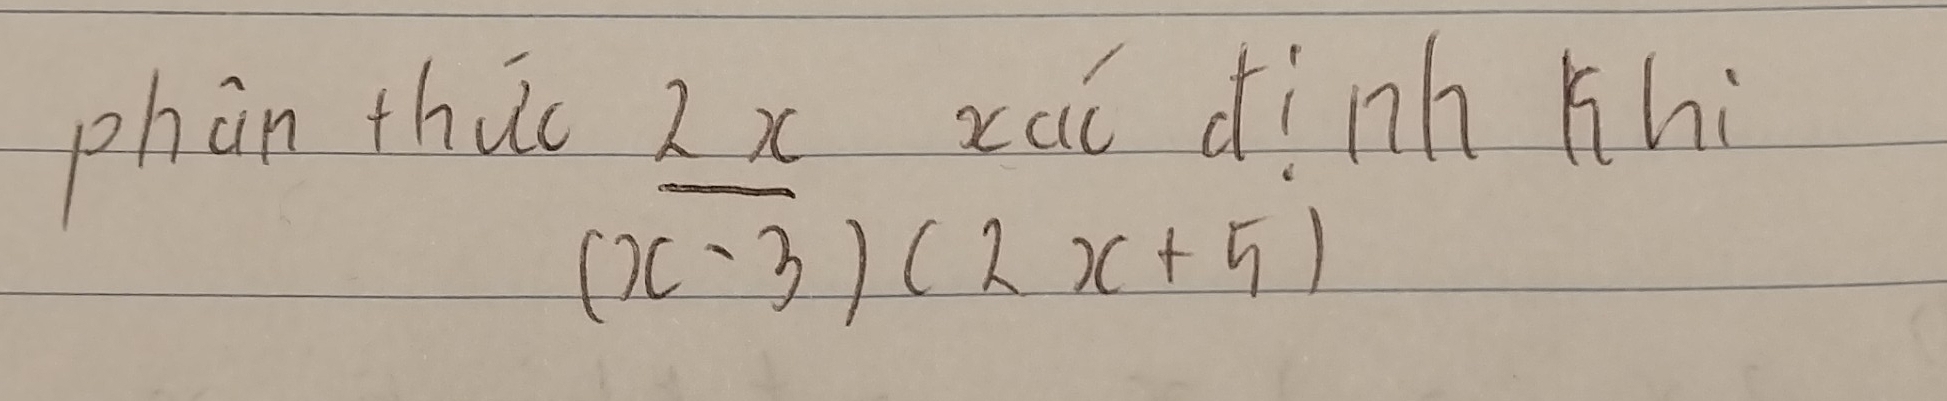 phân thức 2x xác định khi
(x-3)(2x+5)